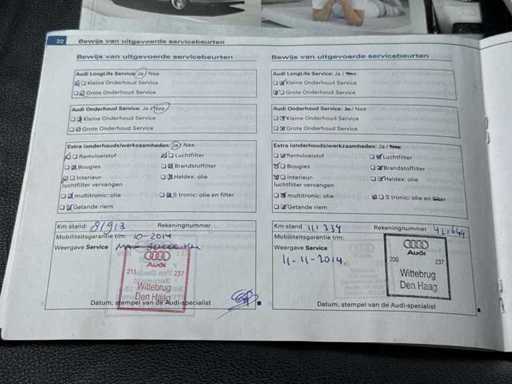 22 Bewijs van uitgevoerde servicebeurten
Bewijs van uitgevoerde servicebeurten
Audi LongLife Service: Ja / Nee
Kleine Onderhoud Service
Grote Onderhoud Service
Audi Onderhoud Service: Ja / Nee
Kleine Onderhoud Service
Grote Onderhoud Service
Extra (onderhouds)werkzaamheden: Ja / Nee
Remvloeistof Luchtfilter
Bougies Brandstoffilter
Interieur- Haldex: olie
luchtfilter vervangen
multitronic: olie S tronic: olie en filter
Getande riem
Km stand: 81913 Rekeningnummer
Mobiliteitsgarantie t/m: 10-2014
Weergave Service
Audi
237
Wittebrug
Den Haag
Datum, stempel van de Audi-specialist
Bewijs van uitgevoerde servicebeurten
Audi LongLife Service: Ja / Nee
Kleine Onderhoud Service
Grote Onderhoud Service
Audi Onderhoud Service: Ja / Nee
Kleine Onderhoud Service
Grote Onderhoud Service
Extra (onderhouds)werkzaamheden: Ja / Nee
Remvloeistof Luchtfilter
Bougies Brandstoffilter
Interieur- Haldex: olie
luchtfilter vervangen
multitronic: olie S tronic: olie en filter
Getande riem
Km stand: 111334 Rekeningnummer
Mobiliteitsgarantie t/m:
Weergave Service
11-11-2014
Audi
237
Wittebrug
Den Haag
Datum, stempel van de Audi-specialist